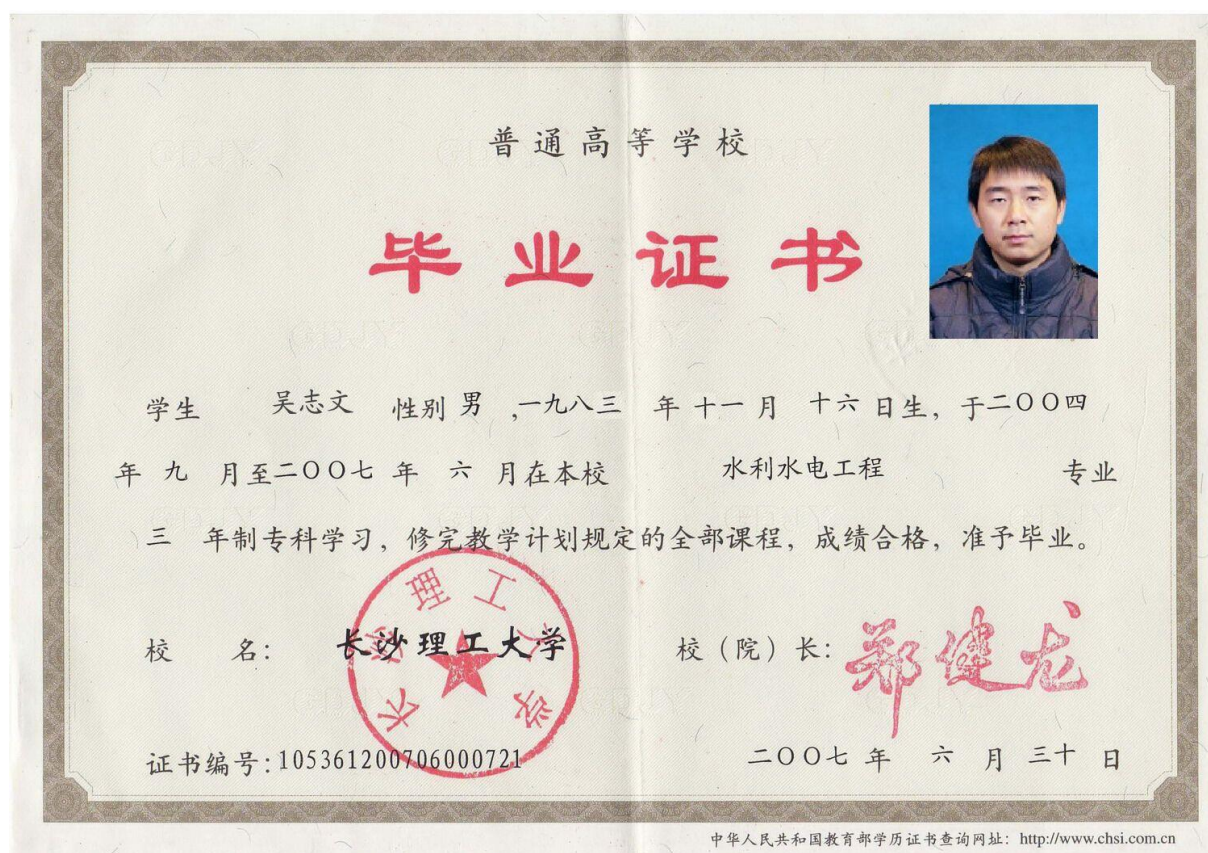 普通高等学校
毕业证书
学生 吴志文 性别 男 ,一九八三 年 十一 月 十六 日生，于二〇〇四
年 九 月至二〇〇七 年 六 月在本校 水利水电工程 专业
三 年制专科学习，修完教学计划规定的全部课程，成绩合格，准予毕业。
校 名： 长沙理工大学 校（院）长： 郑健龙
长沙理工大学
证书编号：105361200706000721 二〇〇七 年 六 月 三十 日
中华人民共和国教育部学历证书查询网址：http://www.chsi.com.cn